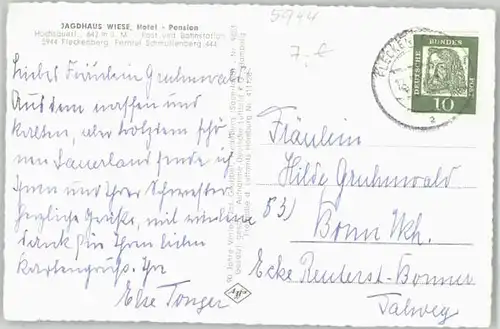 5944
7.€
JAGDHAUS WIESE, Hotel - Pension
Hochsauerl., 642 m ü. M. Post und Bahnstation
5944 Fleckenberg Fernruf Schmallenberg 444
FLECKEN
DEUTSCHE BUNDES POST
10
a
Liebes Fräulein Gruhnwald
Aus dem nassen und
kalten, aber trotzdem schö
nen Sauerland sende ich
Ihnen und Ihrer Schwester
herzliche Grüße, mit vielem
Dank für Ihren lieben
Kartengruß. Ihr
Else Tonger
Fräulein
Hilde Gruhnwald
53) Bonn Rh.
Ecke Reuterst-Bonner
Talweg